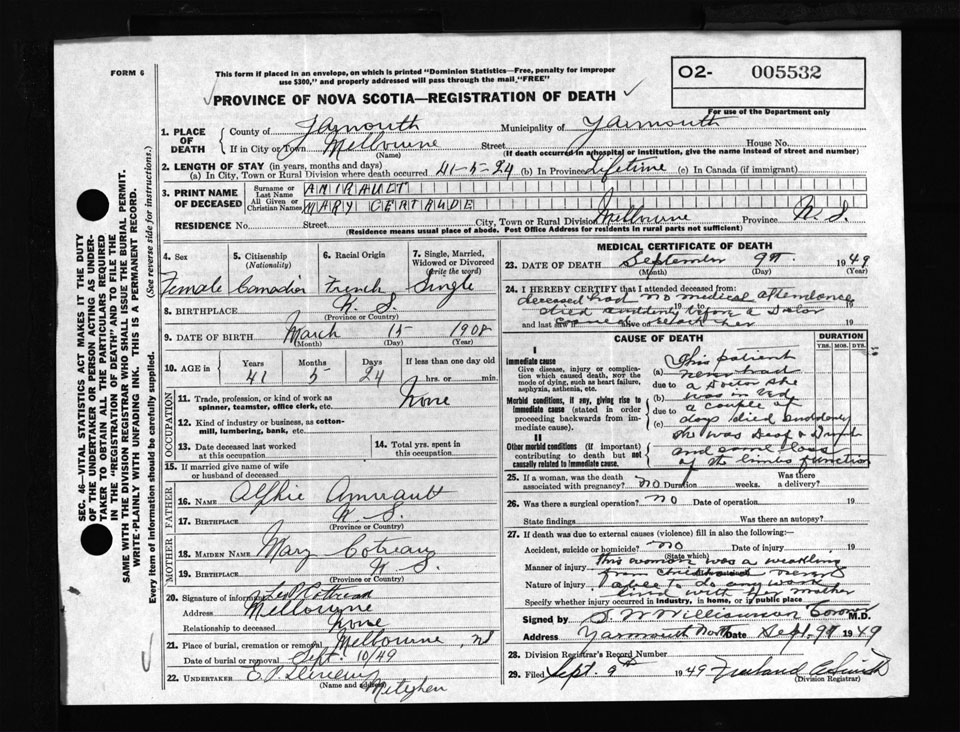 FORM 6
This form if placed in an envelope, on which is printed "Dominion Statistics—Free, penalty for improper
use $300," and properly addressed will pass through the mail "FREE"
O2- 005532
For use of the Department only
PROVINCE OF NOVA SCOTIA—REGISTRATION OF DEATH
SEC. 46—VITAL STATISTICS ACT MAKES IT THE DUTY
OF THE UNDERTAKER OR PERSON ACTING AS UNDER-
TAKER TO OBTAIN ALL THE PARTICULARS REQUIRED
IN THE "REGISTRATION OF DEATH" AND TO FILE THE
SAME WITH THE DIVISION REGISTRAR WHO SHALL ISSUE THE BURIAL PERMIT.
WRITE PLAINLY WITH UNFADING INK. THIS IS A PERMANENT RECORD.
Every item of information should be carefully supplied. (See reverse side for instructions.)
1. PLACE OF DEATH
County of Yarmouth Municipality of Yarmouth
If in City or Town Melbourne Street House No.
(Name) (If death occurred in a hospital or institution, give the name instead of street and number)
2. LENGTH OF STAY (in years, months and days)
(a) In City, Town or Rural Division where death occurred 41-5-24 (b) In Province Lifetime (c) In Canada (if immigrant)
3. PRINT NAME OF DECEASED
Surname or Last Name AMIRAULT
All Given or Christian Names MARY GERTRUDE
RESIDENCE No. Street City, Town or Rural Division Melbourne Province N.S.
(Residence means usual place of abode. Post Office Address for Residents in rural parts not sufficient)
4. Sex Female
5. Citizenship (Nationality) Canadian
6. Racial Origin French
7. Single, Married, Widowed or Divorced (write the word) Single
8. BIRTHPLACE N.S.
(Province or Country)
9. DATE OF BIRTH March 15 1908
(Month) (Day) (Year)
10. AGE in Years Months Days If less than one day old
41 5 24 hrs. or min.
OCCUPATION
11. Trade, profession, or kind of work as
spinner, teamster, office clerk, etc. None
12. Kind of industry or business, as cotton-
mill, lumbering, bank, etc.
13. Date deceased last worked
at this occupation
14. Total yrs. spent in
this occupation
15. If married give name of wife
or husband of deceased
FATHER
16. NAME Alphie Amirault
17. BIRTHPLACE N.S.
(Province or Country)
MOTHER
18. MAIDEN NAME Mary Cotreau
19. BIRTHPLACE N.S.
(Province or Country)
20. Signature of informant Cotreau
Address Melbourne
Relationship to deceased None
21. Place of burial, cremation or removal Melbourne, NS
Date of burial or removal Sept. 10/49
22. UNDERTAKER E.P.
(Name and address) Meteghan
MEDICAL CERTIFICATE OF DEATH
23. DATE OF DEATH September 9th 1949
(Month) (Day) (Year)
24. I HEREBY CERTIFY that I attended deceased from:
deceased had no medical attendance
19 to 19
died suddenly before a Doctor
and last saw h alive on 19
came to see her
CAUSE OF DEATH
DURATION
YRS. MOS. DYS.
I
Immediate cause
Give disease, injury or complica-
tion which caused death, not the
mode of dying, such as heart failure,
asphyxia, asthenia, etc.
Morbid conditions, if any, giving rise to
immediate cause (stated in order
proceeding backwards from im-
mediate cause).
II
Other morbid conditions (if important)
contributing to death but not
causally related to immediate cause.
(a) This patient
never had
due to a Doctor she
(b) was in bed
due to a couple of
(c) days died suddenly
she was Deaf & Dumb
and some loss
of the limbs function
25. If a woman, was the death
associated with pregnancy? No Duration weeks. Was there
a delivery?
26. Was there a surgical operation? No Date of operation 19
State findings Was there an autopsy?
27. If death was due to external causes (violence) fill in also the following:
Accident, suicide or homicide? No Date of injury 19
(State which)
Manner of injury this woman was a weakling
from childhood never
Nature of injury able to do any work
lived with her mother
Specify whether injury occurred in industry, in home, or in public place
Signed by Coroner M.D.
Address Yarmouth North Date Sept. 9th 1949
28. Division Registrar's Record Number
29. Filed Sept. 9th 1949
(Division Registrar)